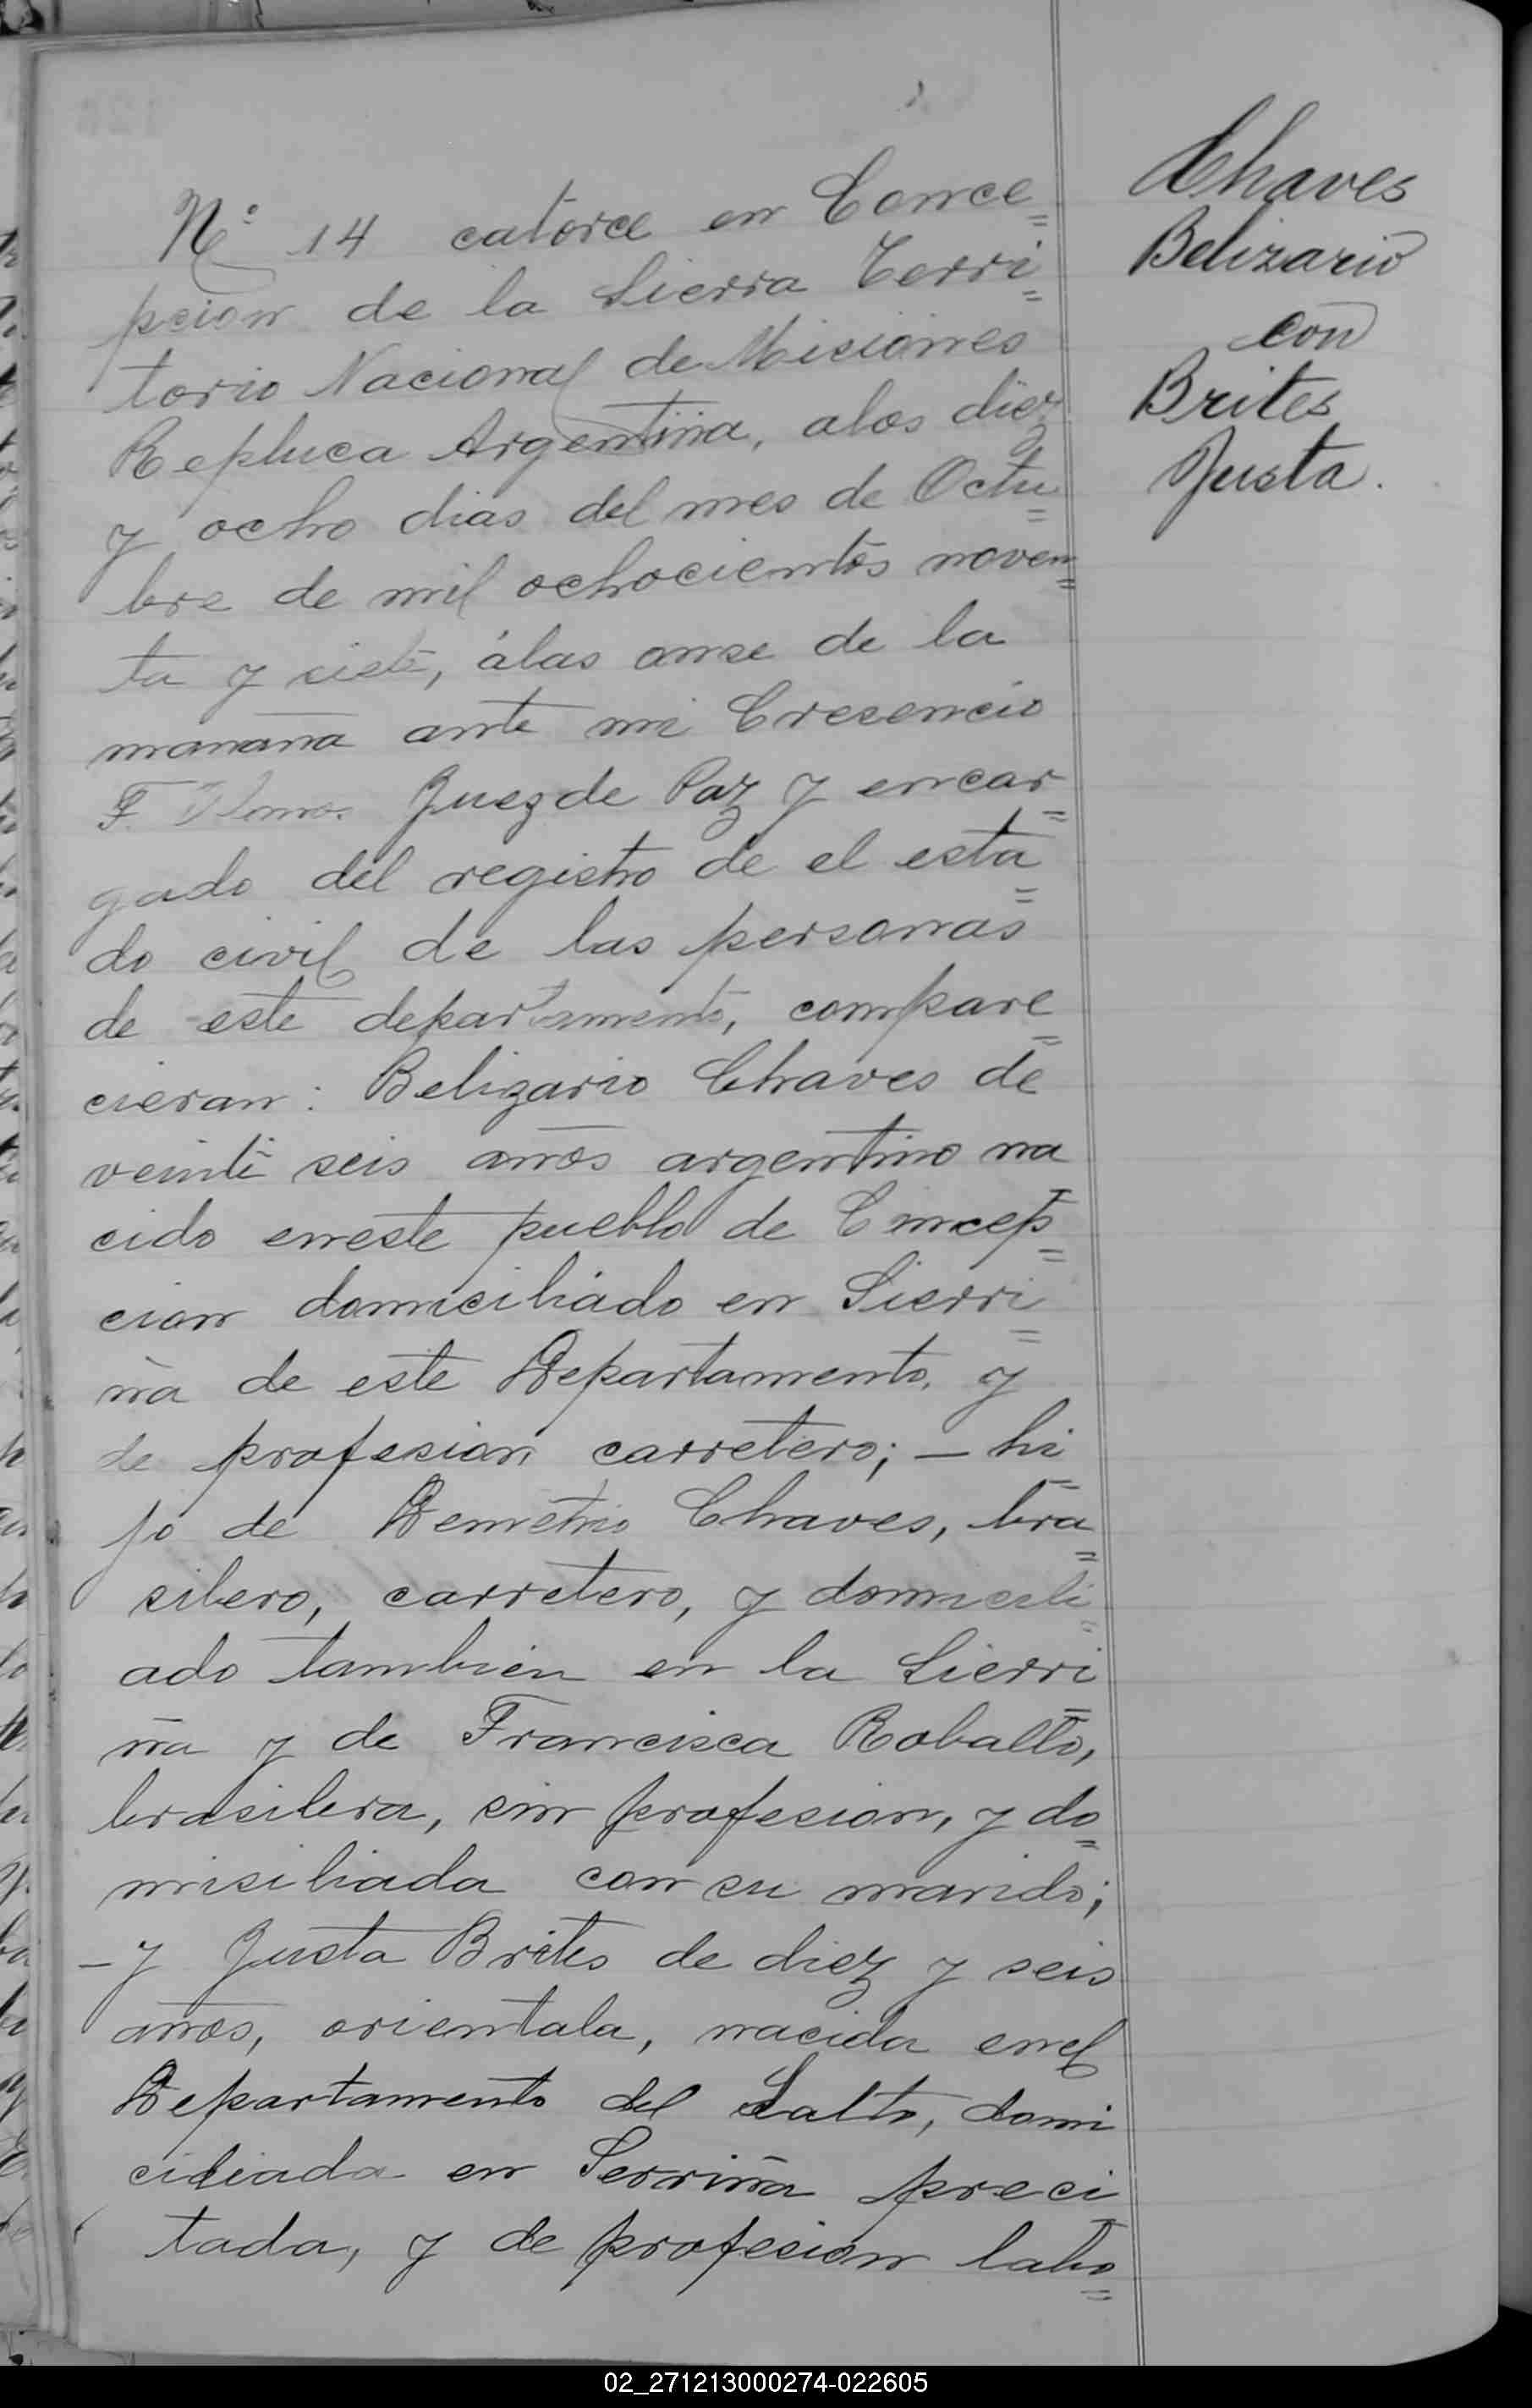 Nº 14 catorce en Conce=
pcion de la Sierra Terri=
torio Nacional de Misiones
Repluca Argentina, alos diez
y ocho dias del mes de Octu=
bre de mil ochocientos noven=
ta y siete, álas onse de la
mañana ante mi Cresencio
F. Juez de Paz y encar=
gado del registro de el esta=
do civil de las personas
de este departamento, compare=
cieran: Belizario Chaves de
veinti seis años argentino na
cido eneste pueblo de Concep=
cion domiciliado en Sierri=
ña de este Departamento, y
de profesion carretero; – hi=
jo de Demetrio Chaves, bra=
silero, carretero, y domicili=
ado tambien en la Sierri=
ña y de Francisca Roballo,
brasilera, sin profesion, y do=
misiliada con su marido;
– y Justa Brites de diez y seis
años, orientala, nacida enel
Departamento del Salto, domi
ciliada en Serriña preci
tada, y de profesion labo=
Chaves
Belizario
con
Brites
Justa.
02_271213000274-022605